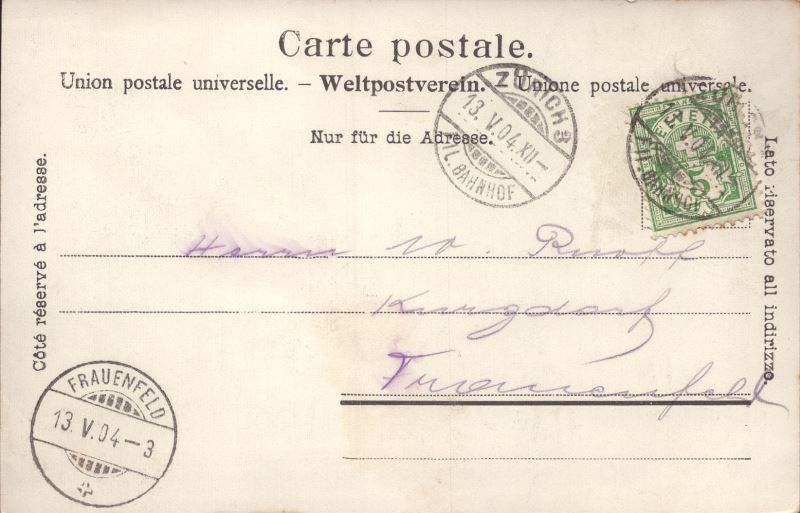 Carte postale.
Union postale universelle. – Weltpostverein. – Unione postale universale.
Nur für die Adresse.
ZÜRICH 3
13.V.04.XII–
FIL. BAHNHOF
HELVETIA
5
FIL. BAHNHOF
Côté réservé à l'adresse.
Lato riservato all indirizzo.
Herrn W. Ruoff
Kurzdorf
Frauenfeld
FRAUENFELD
13.V.04–3